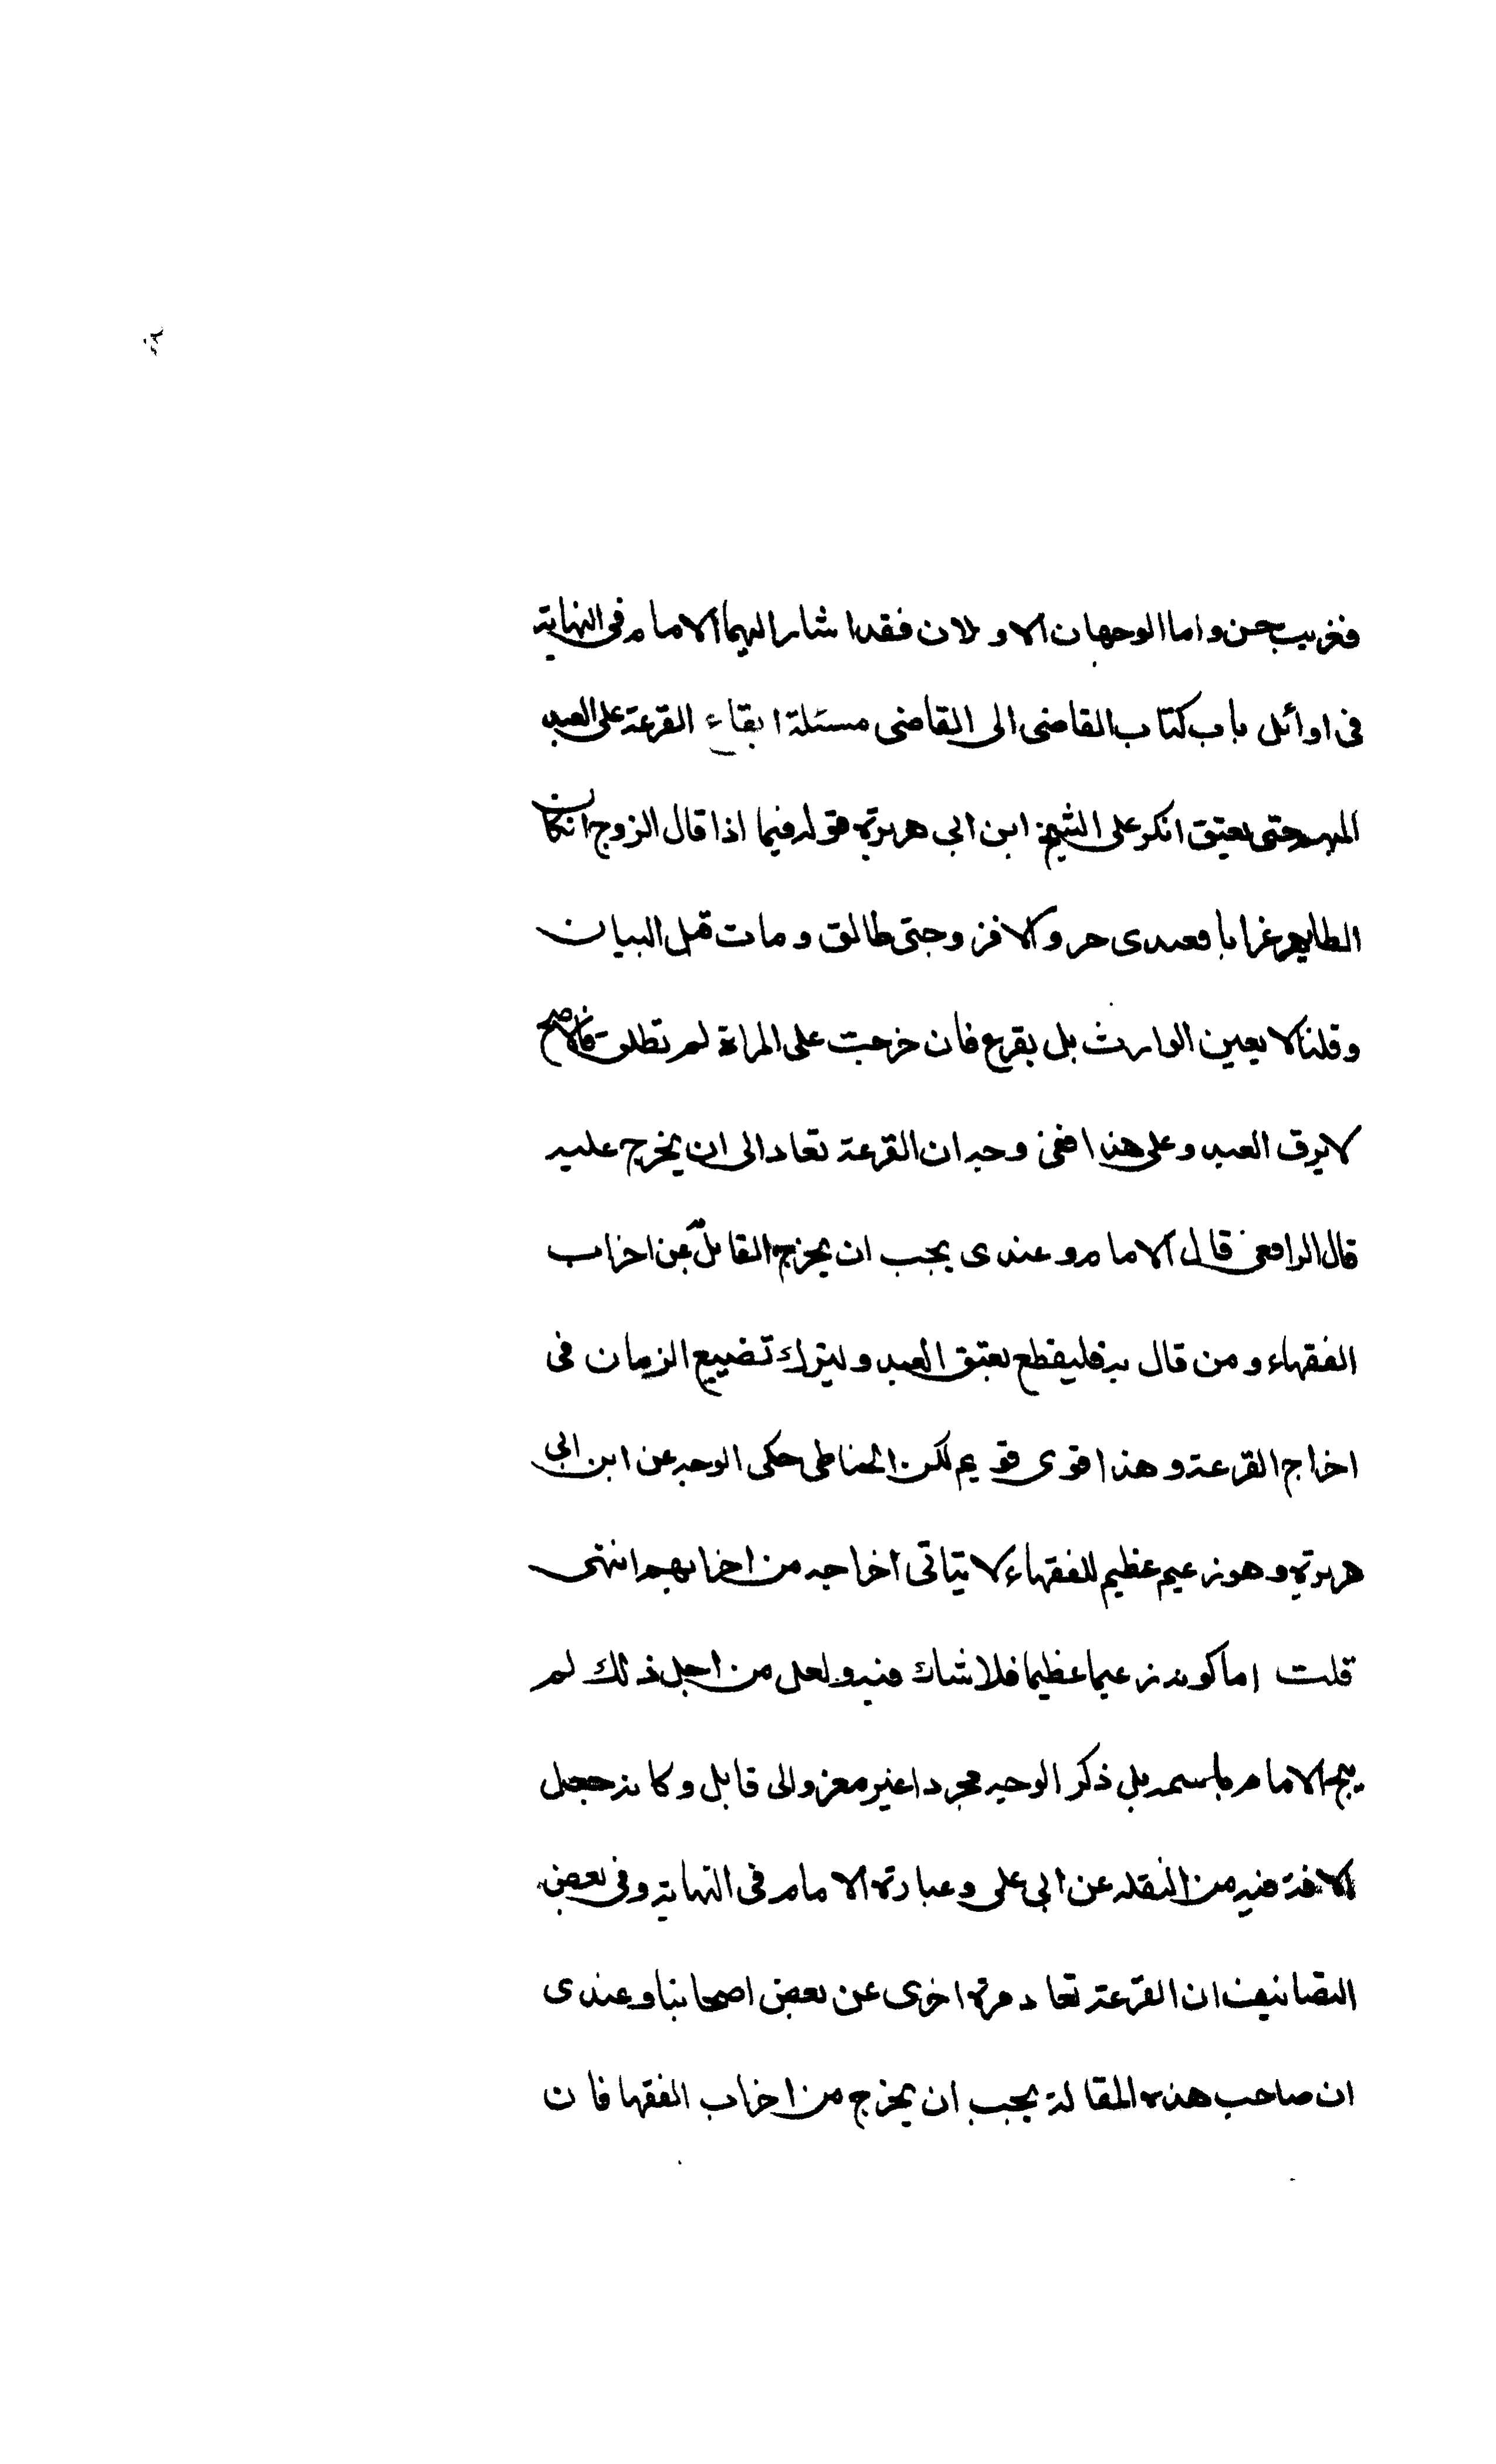 فغريب حسن واما الوجهان الاولان فقد اشار اليهما الامام في النهاية
في اوائل باب كتاب القاضي الى القاضي مسئلة ابقاء القرعة على العبد
المبهم حتى يعتق انكر على الشيخ ابن ابي هريرة قوله فيما اذا قال الزوج ان كان
الطاير غرابا فعبدي حر والا فزوجتي طالق ومات قبل البيان
وقلنا لا يعين الوارث بل يقرع فان خرجت على المراة لم تطلق فالاصح
لا يرق العبد وعلى هذا ففي وجه ان القرعة تعاد الى ان يخرج عليه
قال الرافعي قال الامام وعندي يجب ان يخرج القائل عن احزاب
الفقهاء ومن قال به فليقطع بعتق العبد وليترك تضييع الزمان في
اخراج القرعة وهذا قوى قويم لكن الحناطي حكى الوجه عن ابن ابي
هريرة وهو زعيم عظيم للفقهاء لا يتاتى اخراجه من احزابهم انتهى
قلت اما كونه زعيما عظيما فلا شك فيه ولعل من اجل ذلك لم
يبح الامام باسمه بل ذكر الوجه مجردا غير معزو الى قايل وكانه جعل
الافة فيه من النقله عن ابي علي وعبارة الامام في النهاية وفي بعض
التصانيف ان القرعة تعاد مرة اخرى عن بعض اصحابنا وعندي
ان صاحب هذه المقالة يجب ان يخرج من احزاب الفقها فان